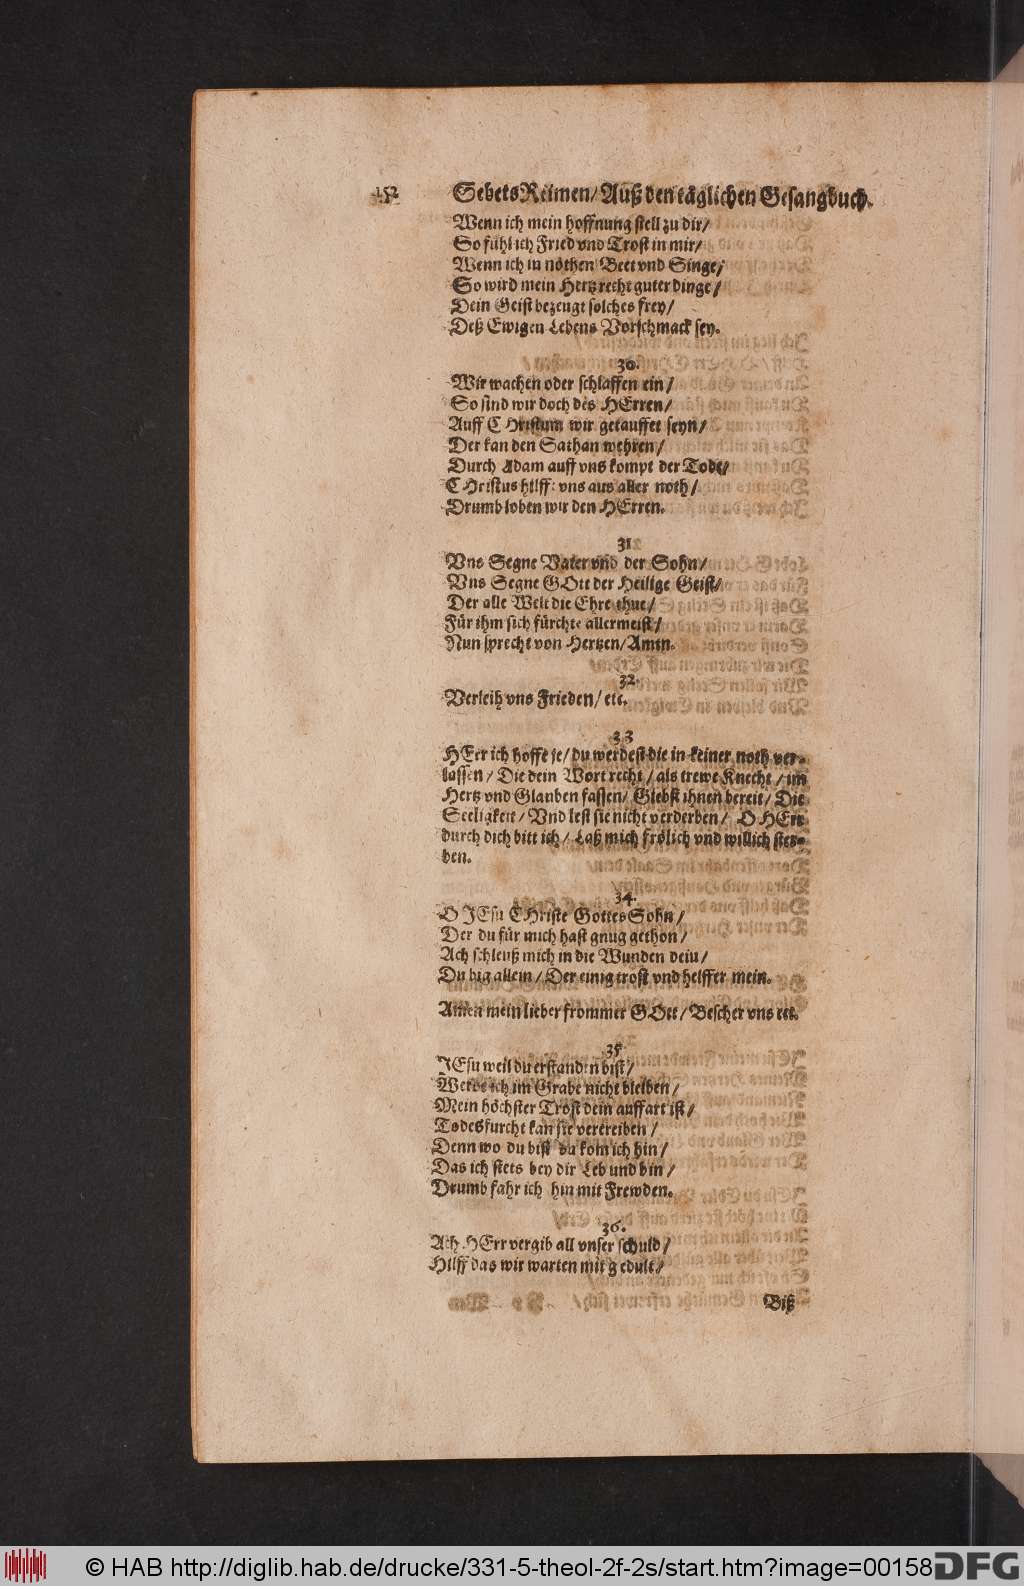 152. GebetsReimen/ Auß den täglichen Gesangbuch.
Wenn ich mein hoffnung stell zu dir/
So fühl ich Fried vnd Trost in mir/
Wenn ich in nöthen Beet vnd Singe/
So wird mein Hertz recht guter dinge/
Dein Geist bezeugt solches frey/
Deß Ewigen Lebens Vorschmack sey.
30.
Wir wachen oder schlaffen ein/
So sind wir doch des HErren/
Auff CHristum wir getauffet seyn/
Der kan den Sathan wehren/
Durch Adam auff vns kompt der Todt/
CHristus hilfft vns aus aller noth/
Drumb loben wir den HErren.
31
Vns Segne Vater vnd der Sohn/
Vns Segne GOtt der Heilige Geist/
Der alle Welt die Ehre thue/
Für ihm sich fürchte allermeist/
Nun sprecht von Hertzen/ Amen.
32.
Verleih vns Frieden/ etc.
33
HErr ich hoffe je/ du werdest die in keiner noth ver-
lassen/ Die dein Wort recht/ als trewe Knecht/ im
Hertz vnd Glauben fassen/ Giebst ihnen bereit/ Die
Seeligkeit/ Vnd lest sie nicht verderben/ O HErr
durch dich bitt ich/ Laß mich frölich vnd willich ster-
ben.
34.
O JEsu CHriste Gottes Sohn/
Der du für mich hast gnug gethon/
Ach schleuß mich in die Wunden dein/
Du big allein/ Der einig trost vnd helffer mein.
Amen mein lieber frommer GOtt/ Bescher vns etc.
35
JEsu weil du erstanden bist/
Werde ich im Grabe nicht bleiben/
Mein höchster Trost dein auffart ist/
Todesfurcht kan sie vertreiben/
Denn wo du bist da kom ich hin/
Das ich stets bey dir Leb und bin/
Drumb fahr ich hin mit Frewden.
36.
Ach HErr vergib all vnser schuld/
Hilff das wir warten mit gedult/
Biß
© HAB http://diglib.hab.de/drucke/331-5-theol-2f-2s/start.htm?image=00158
DFG